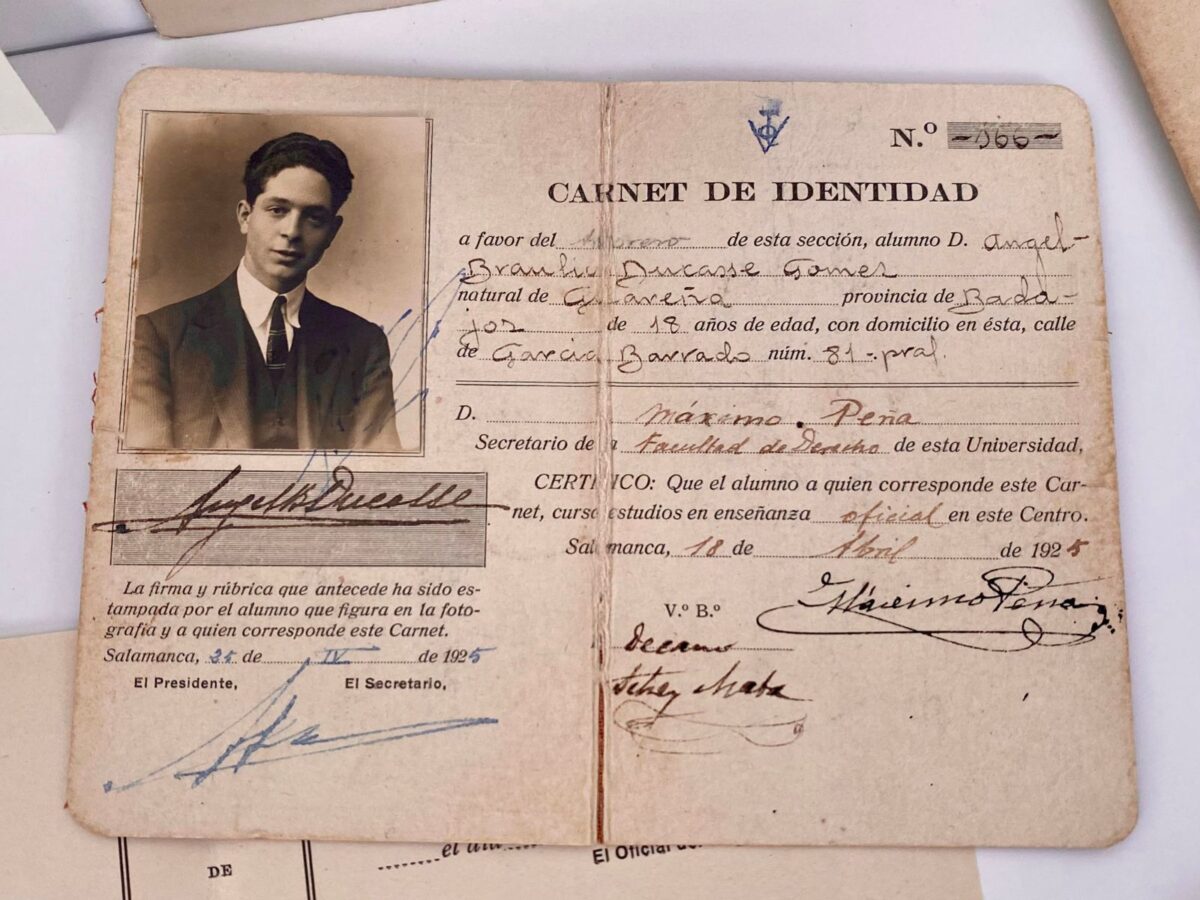 N.º -166-
CARNET DE IDENTIDAD
a favor del de esta sección, alumno D. Angel-
Braulio Ducasse Gomez
natural de Guareña provincia de Bada-
joz de 18 años de edad, con domicilio en ésta, calle
de Garcia Barrado núm. 81-pral.
D. Máximo Peña
Secretario de la Facultad de Derecho de esta Universidad,
CERTIFICO: Que el alumno a quien corresponde este Car-
net, cursa estudios en enseñanza oficial en este Centro.
Salamanca, 18 de Abril de 1925
Máximo Peña
V.º B.º
Decano
Mata
Angel B Ducasse
La firma y rúbrica que antecede ha sido es-
tampada por el alumno que figura en la foto-
grafía y a quien corresponde este Carnet.
Salamanca, 25 de IV de 1925
El Presidente, El Secretario,
DE
el alu
El Oficial de